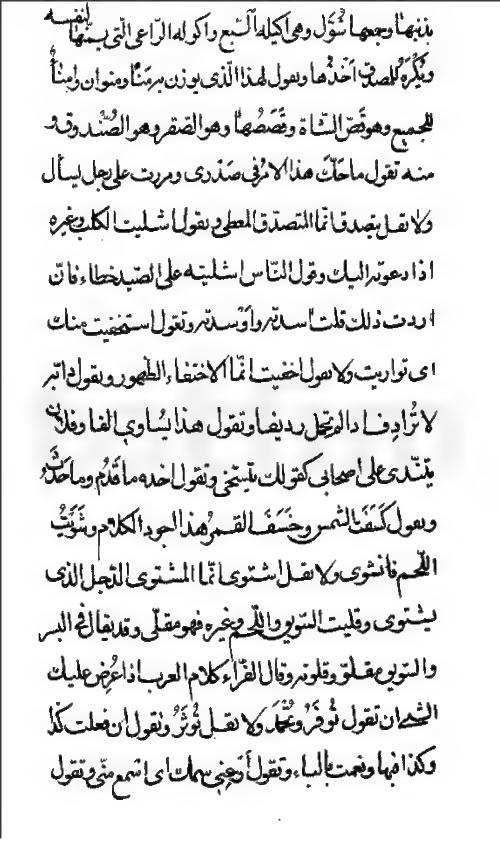 بذنبها وجمعها شُوَّل وهى اكيلة السّبع واكولة الرّاعى التى يسمّنها لنفسه
ويُكْرَهُ للمصدق اَخْذُها وتقول لهذا الّذى يوزن به مَنًا ومنوان وامنأ
للجميع وهو قصّ الشاة وقَصَصُها وهو الصقر وهو الصُّندوق
منه تقول ما حكّ هذا الامر فى صَدْرى ومررت على رجل يسأل
ولا تقل يتصدق انّما المتصدّق المعطى وتقول اشليت الكلب وغيره
اذا دعوته اليك وقول النّاس اشليته على الصّيد خطاء فان
اردت ذلك قلت آسدته واوسدته وتقول استخفيت منك
اى تواريت ولا تقول اختفيت انّما الاختفاء الظهور وتقول دابّة
لا تُرادِف اذا لم تحمل رديفا وتقول هذا يساوى الفا وفلان
يتندّى على اصحابى كقولك يتسخّى وتقول اخذه ما قَدُم وما حَدُث
وتقول كَسَفَت الشمس وخَسَفَ القمر هذا اجود الكلام وشويت
اللّحم فانشوى ولا تقل اشتوى انّما المشتوى الرّجل الذى
يشتوى وقليت السّويق واللّحم وغيره فهو مقلّى وقد يقال فى البسر
والسّويق مقلوّ وقلوته وقال الفرّاء كلام العرب اذا عُرِض عليك
الشئ ان تقول تُوفَرُ وتُحْمَد ولا تقل تُوثَرُ وتقول ان فعلت كذا
وكذا فبها ونعمت بالتاء وتقول أرعِنى سمعك اى اسمع منّى وتقول